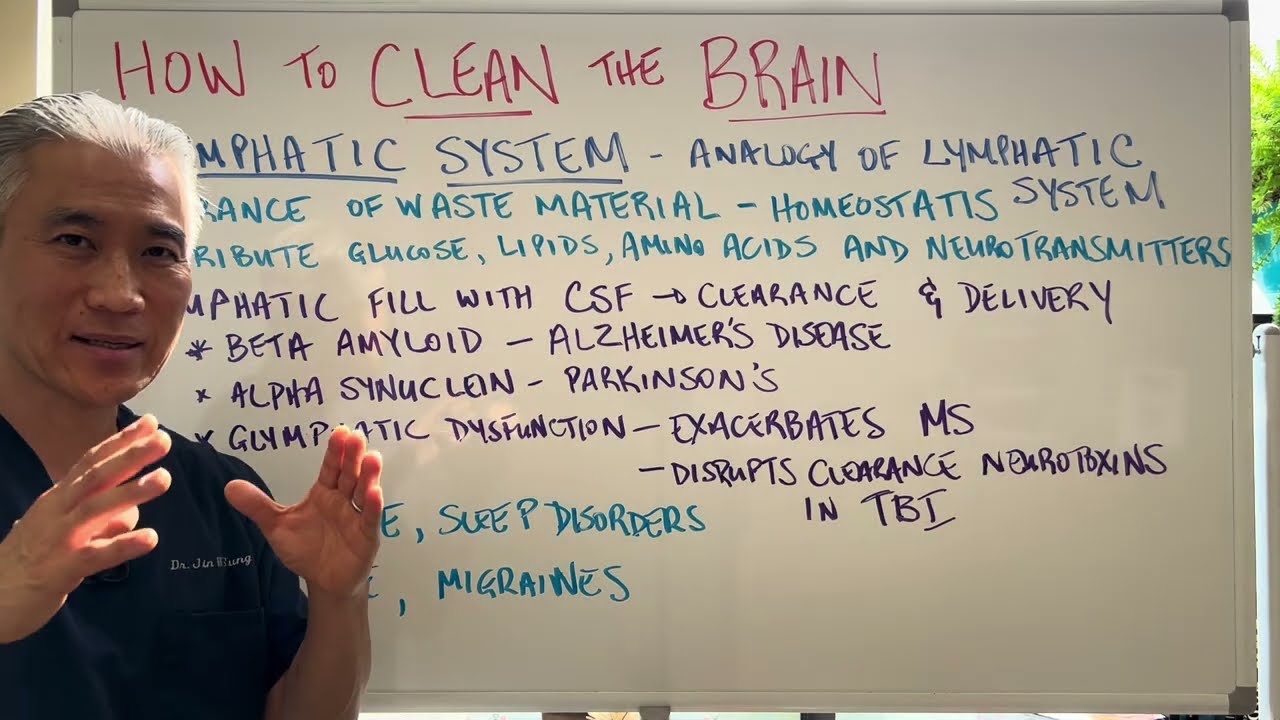 HOW TO CLEAN THE BRAIN
MPHATIC SYSTEM - ANALOGY OF LYMPHATIC SYSTEM
RANCE OF WASTE MATERIAL - HOMEOSTATIS
RIBUTE GLUCOSE, LIPIDS, AMINO ACIDS AND NEUROTRANSMITTERS
MPHATIC FILL WITH CSF → CLEARANCE & DELIVERY
* BETA AMYLOID - ALZHEIMER'S DISEASE
* ALPHA SYNUCLEIN - PARKINSON'S
* GLYMPHATIC DYSFUNCTION - EXACERBATES MS
- DISRUPTS CLEARANCE NEUROTOXINS
IN TBI
E, SLEEP DISORDERS
E, MIGRAINES
Dr. Jin W Sung